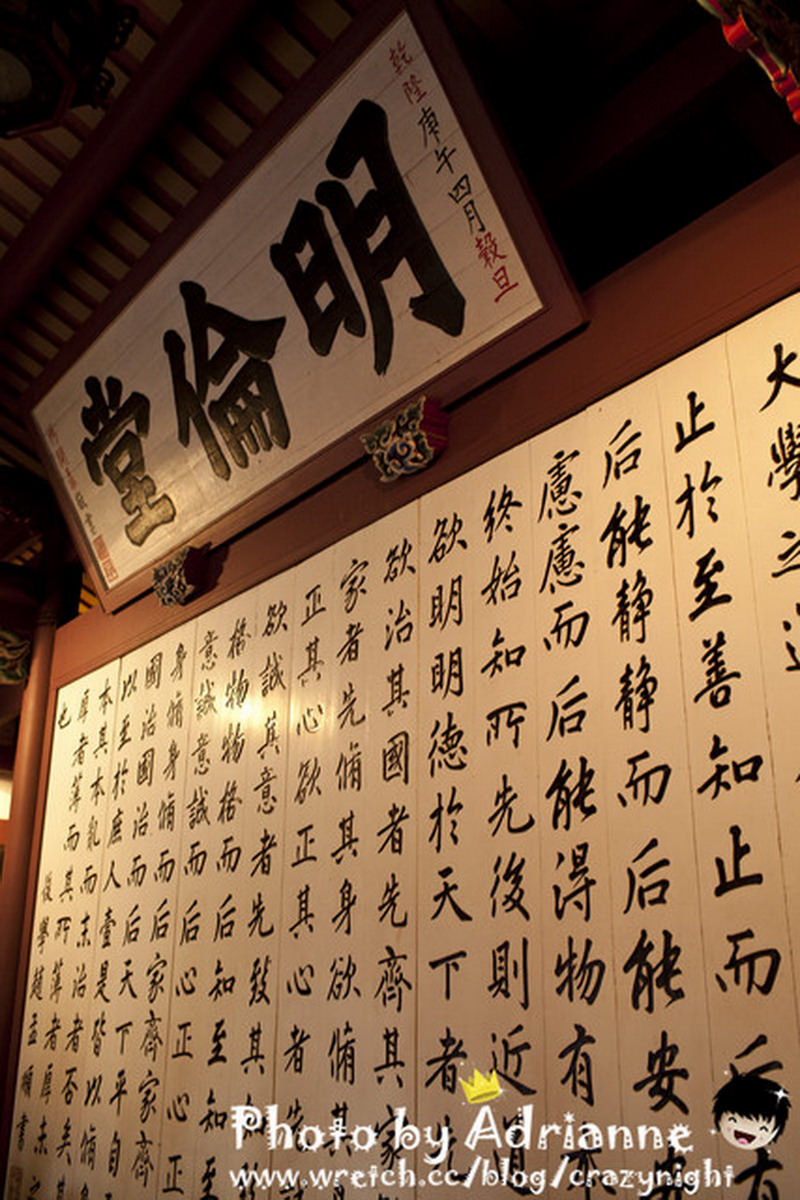 乾隆庚午四月穀旦
明倫堂
大學之道
止於至善知止而后
后能静静而后能安
慮慮而后能得物有
終始知所先後則近道
欲明明德於天下者先
欲治其國者先齊其家
家者先脩其身欲脩其
正其心欲正其心者先
欲誠其意者先致其知
格物物格而后知至知至
意誠意誠而后心正心正
身脩身脩而后家齊家齊
國治國治而后天下平自
以至於庶人壹是皆以脩
本其本乱而末治者否矣其
厚者薄而其所薄者厚未之
也
後學趙孟頫書
Photo by Adrianne
www.wretch.cc/blog/crazynight